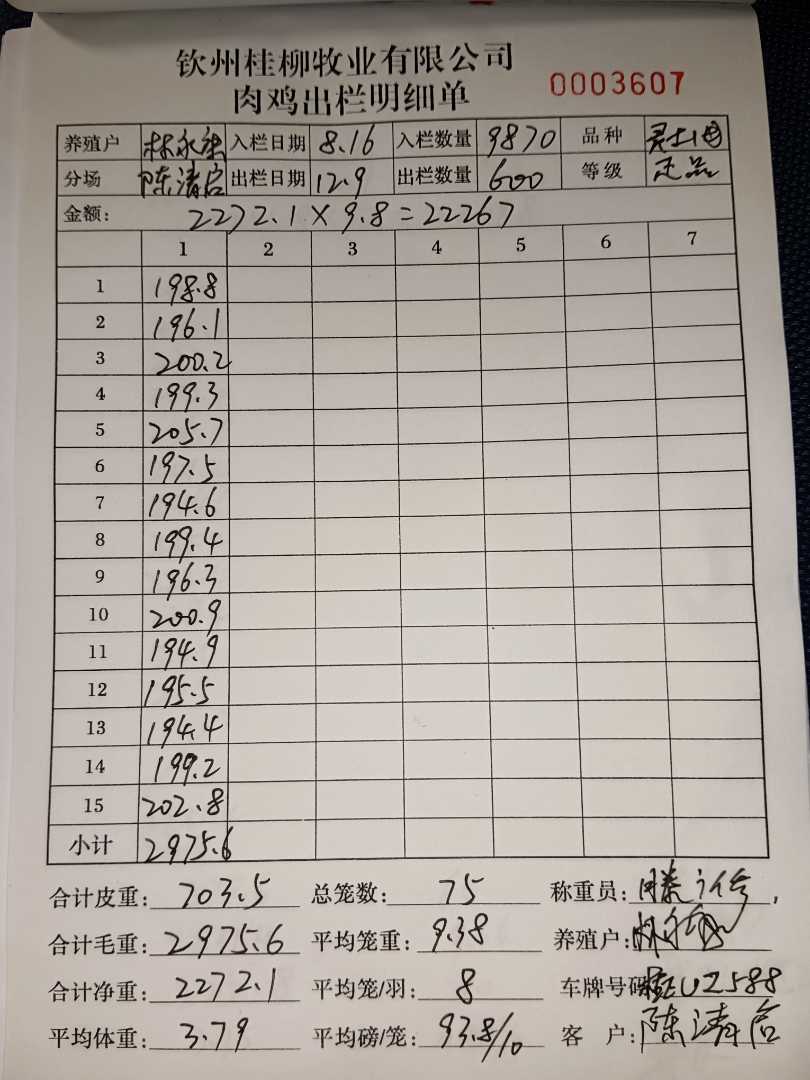 钦州桂柳牧业有限公司
肉鸡出栏明细单 0003607
养殖户 林永 入栏日期 8.16 入栏数量 9870 品种
分场 陈清启 出栏日期 12.9 出栏数量 600 等级 正品
金额: 2272.1×9.8=22267
1 2 3 4 5 6 7
1 198.8
2 196.1
3 200.2
4 199.3
5 205.7
6 197.5
7 194.6
8 199.4
9 196.3
10 200.9
11 194.9
12 195.5
13 194.4
14 199.2
15 202.8
小计 2975.6
合计皮重: 703.5 总笼数: 75 称重员:
合计毛重: 2975.6 平均笼重: 9.38 养殖户:
合计净重: 2272.1 平均笼/羽: 8 车牌号码 桂EU2588
平均体重: 3.79 平均磅/笼: 93.8/10 客 户: 陈清启